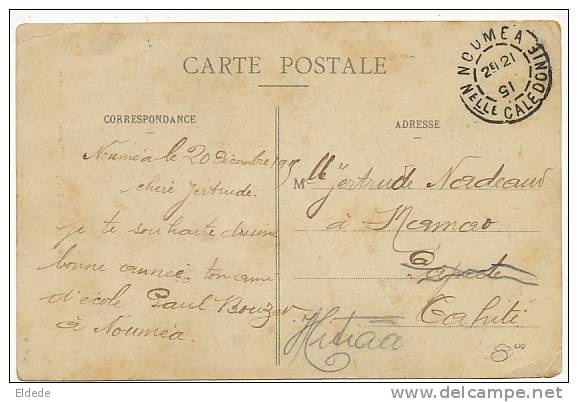 CARTE POSTALE
NOUMÉA
21
15
NELLE CALÉDONIE
CORRESPONDANCE
ADRESSE
Nouméa le 20 Décembre
chère Gertrude.
je te souhaite d'une
bonne année, ton ami
d'école Paul
à Nouméa
Mlle Gertrude Nadeaud
à Mamao
Papeete
Tahiti
Hitiaa
800
Eldede
www.delcampe.net